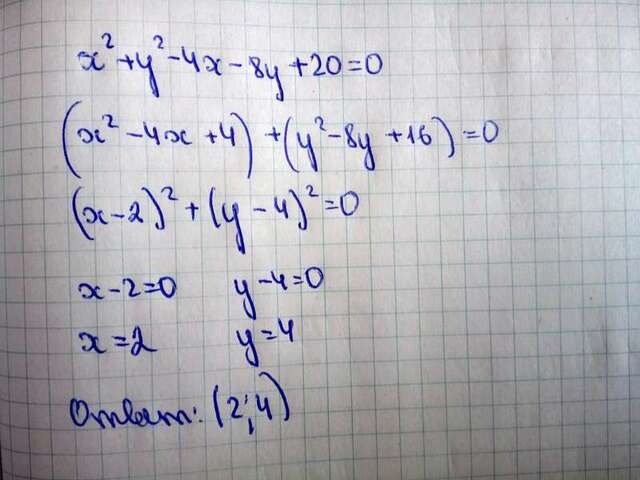 x²+y²-4x-8y+20=0
(x²-4x+4)+(y²-8y+16)=0
(x-2)²+(y-4)²=0
x-2=0 y-4=0
x=2 y=4
Ответ: (2;4)